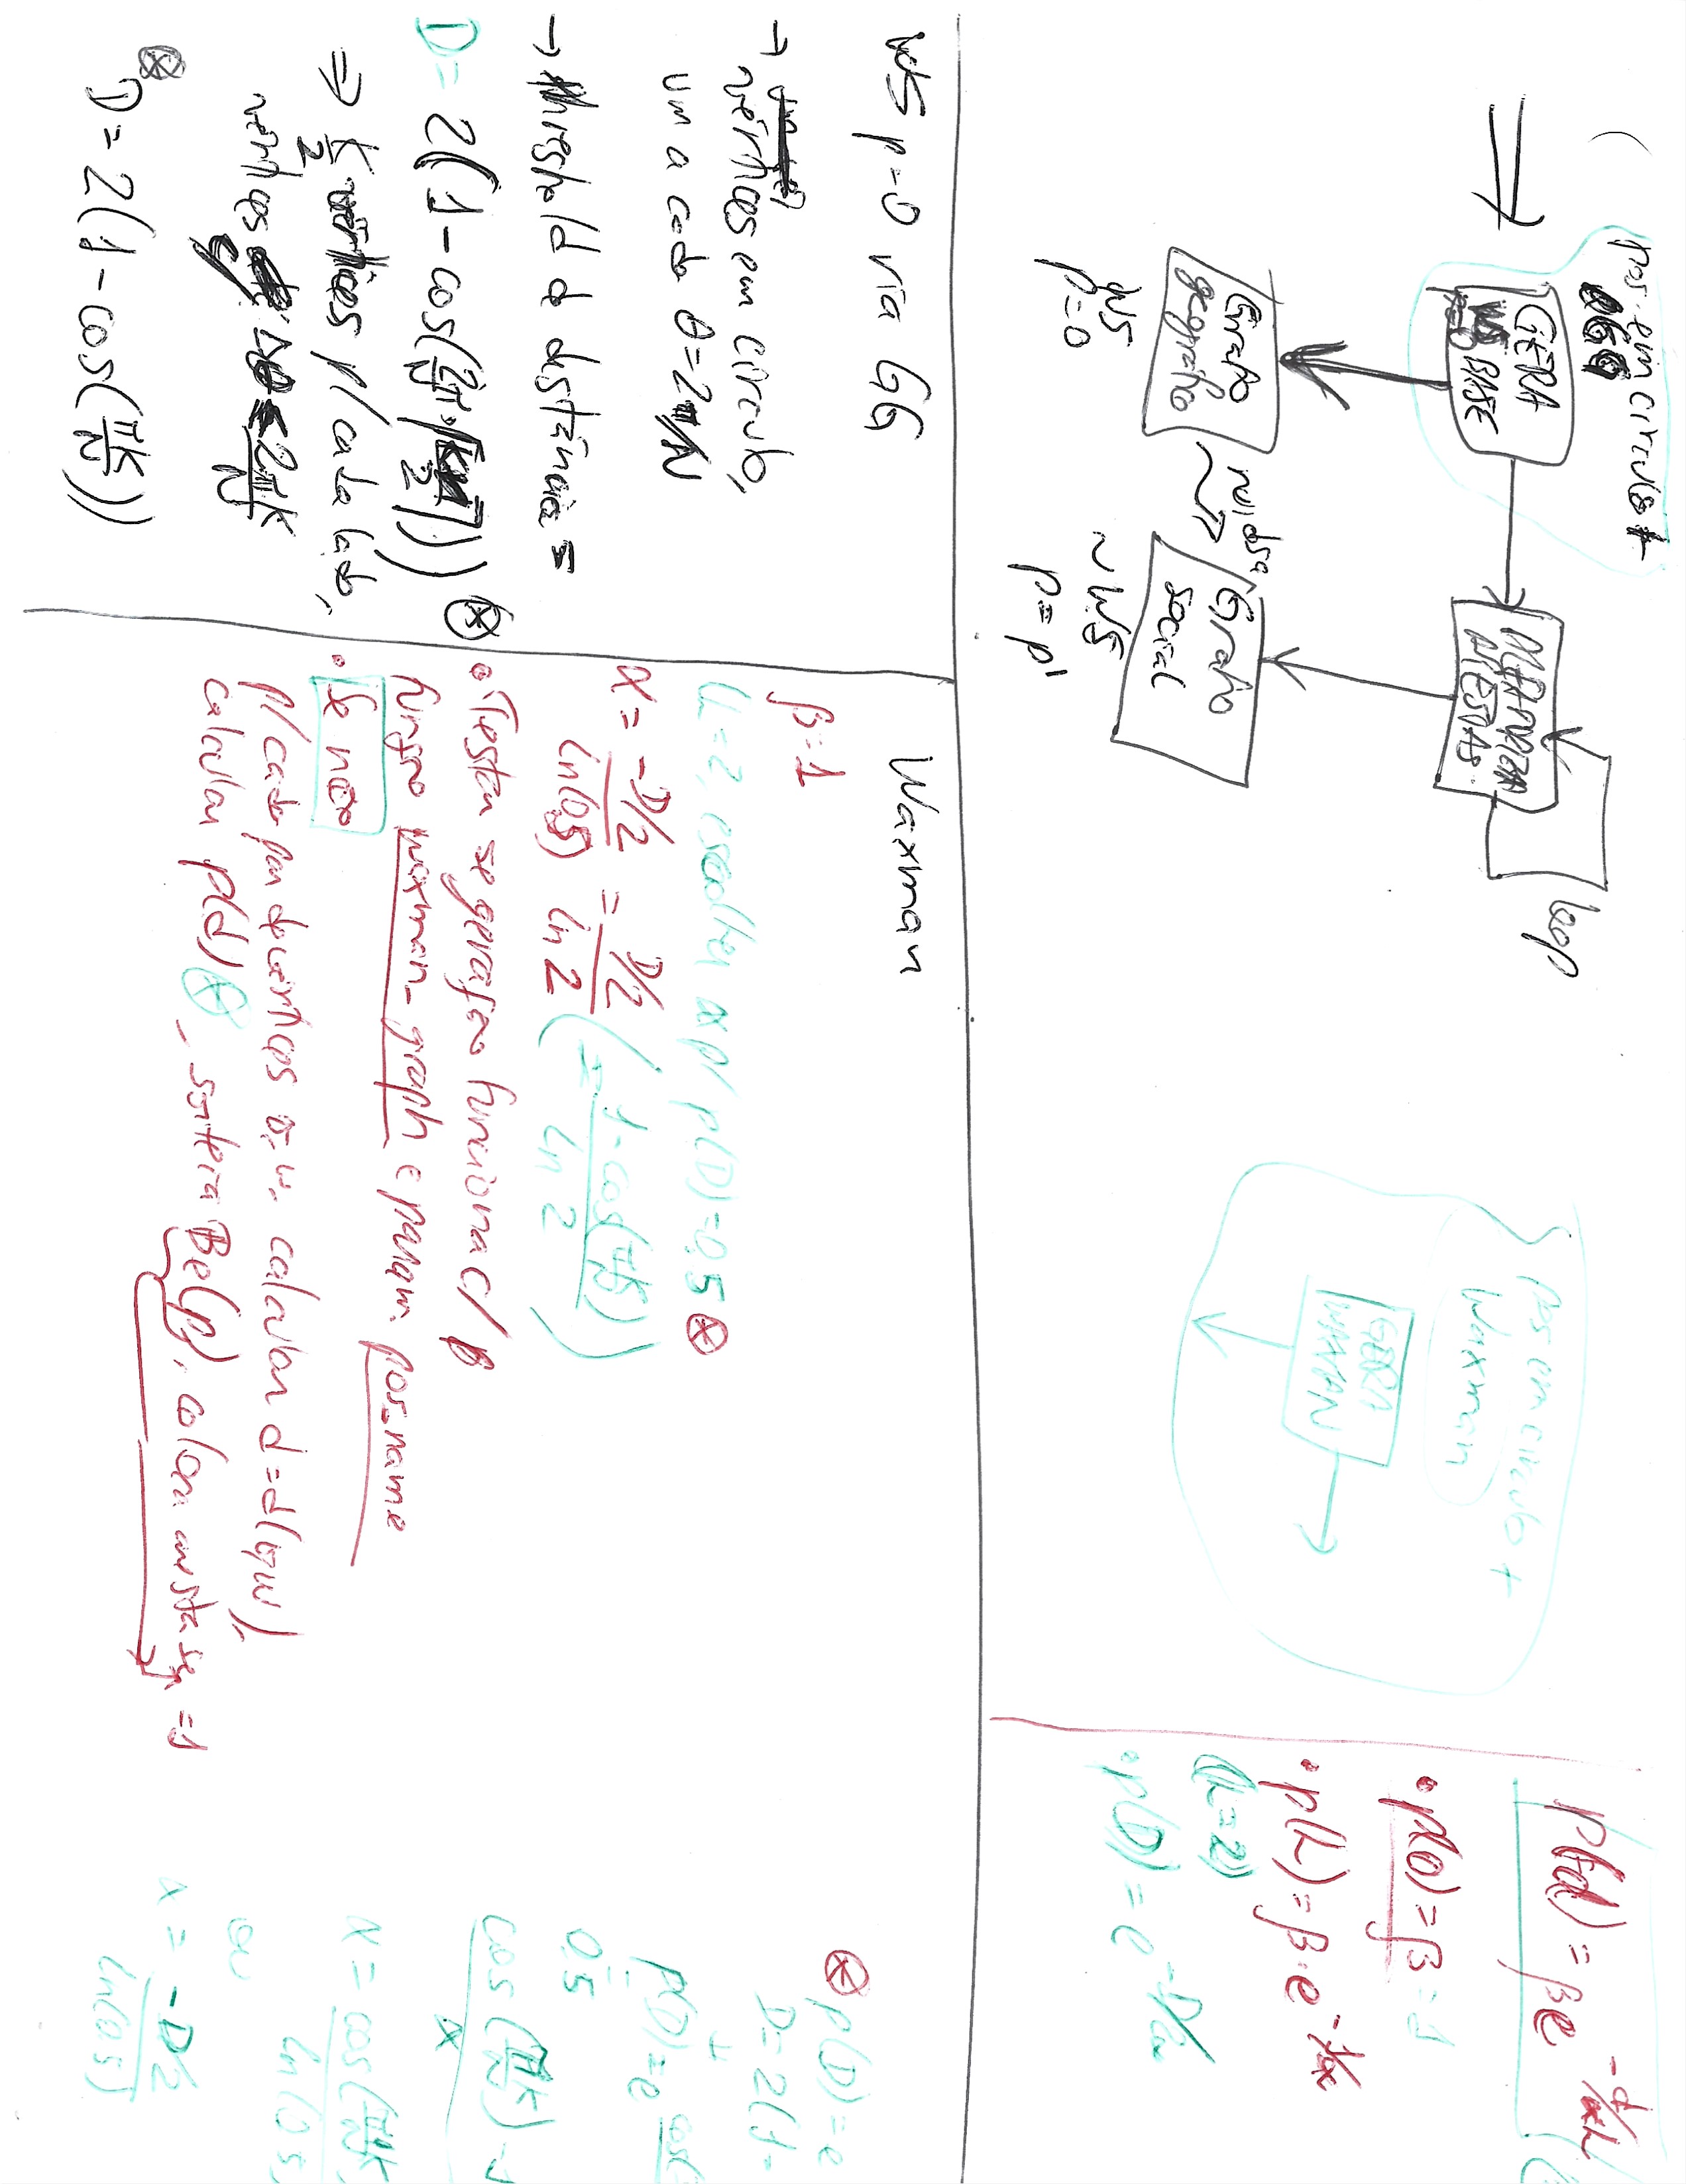 pos em círculo +
GG
GERA
WS BASE
p=0
ALEATORIZA
ARESTAS
loop
Grafo
geográfico
ruidosa
Grafo
social
WS
p=0
~WS
p=p'
pos em círculo +
Waxman
GERA
WAXMAN
p(d) = βe^(-d/αL)
• p(0) = β = 1
• p(L) = β·e^(-1/α)
(L=2)
• p(D) = e^(-D/2α)
WS p=0 via GG
→ vértices em círculo,
um a cada θ=2π/N
→ threshold de distância =
D= 2(1-cos(2π/N·⌈K/2⌉)) ⊗
⇒ K/2 vértices p/ cada lado,
vértices c/ Δθ ≤ 2πK/N
⊗
D = 2(1-cos(πK/N))
Waxman
β=1
L=2, escolher α p/ p(D)=0,5 ⊗
α = (-D/2)/ln(0,5) = (D/2)/ln 2 (= (1-cos(πK/N))/ln 2)
• Testar se geração funciona c/
função waxman_graph e param. pos_name
• Se não
p/ cada par de vértices v, w, calcular d=d(v,w),
calcular p(d) ⊗, sorteia Be(p), coloca aresta se = 1
⊗ p(D) = e
D= 2(1-
↓
p(D) = e^cos(
=
0,5
cos(πK/N) -1
α
α = cos(πK/N
ln(0,5)
ou
α = -D/2
ln(0,5)